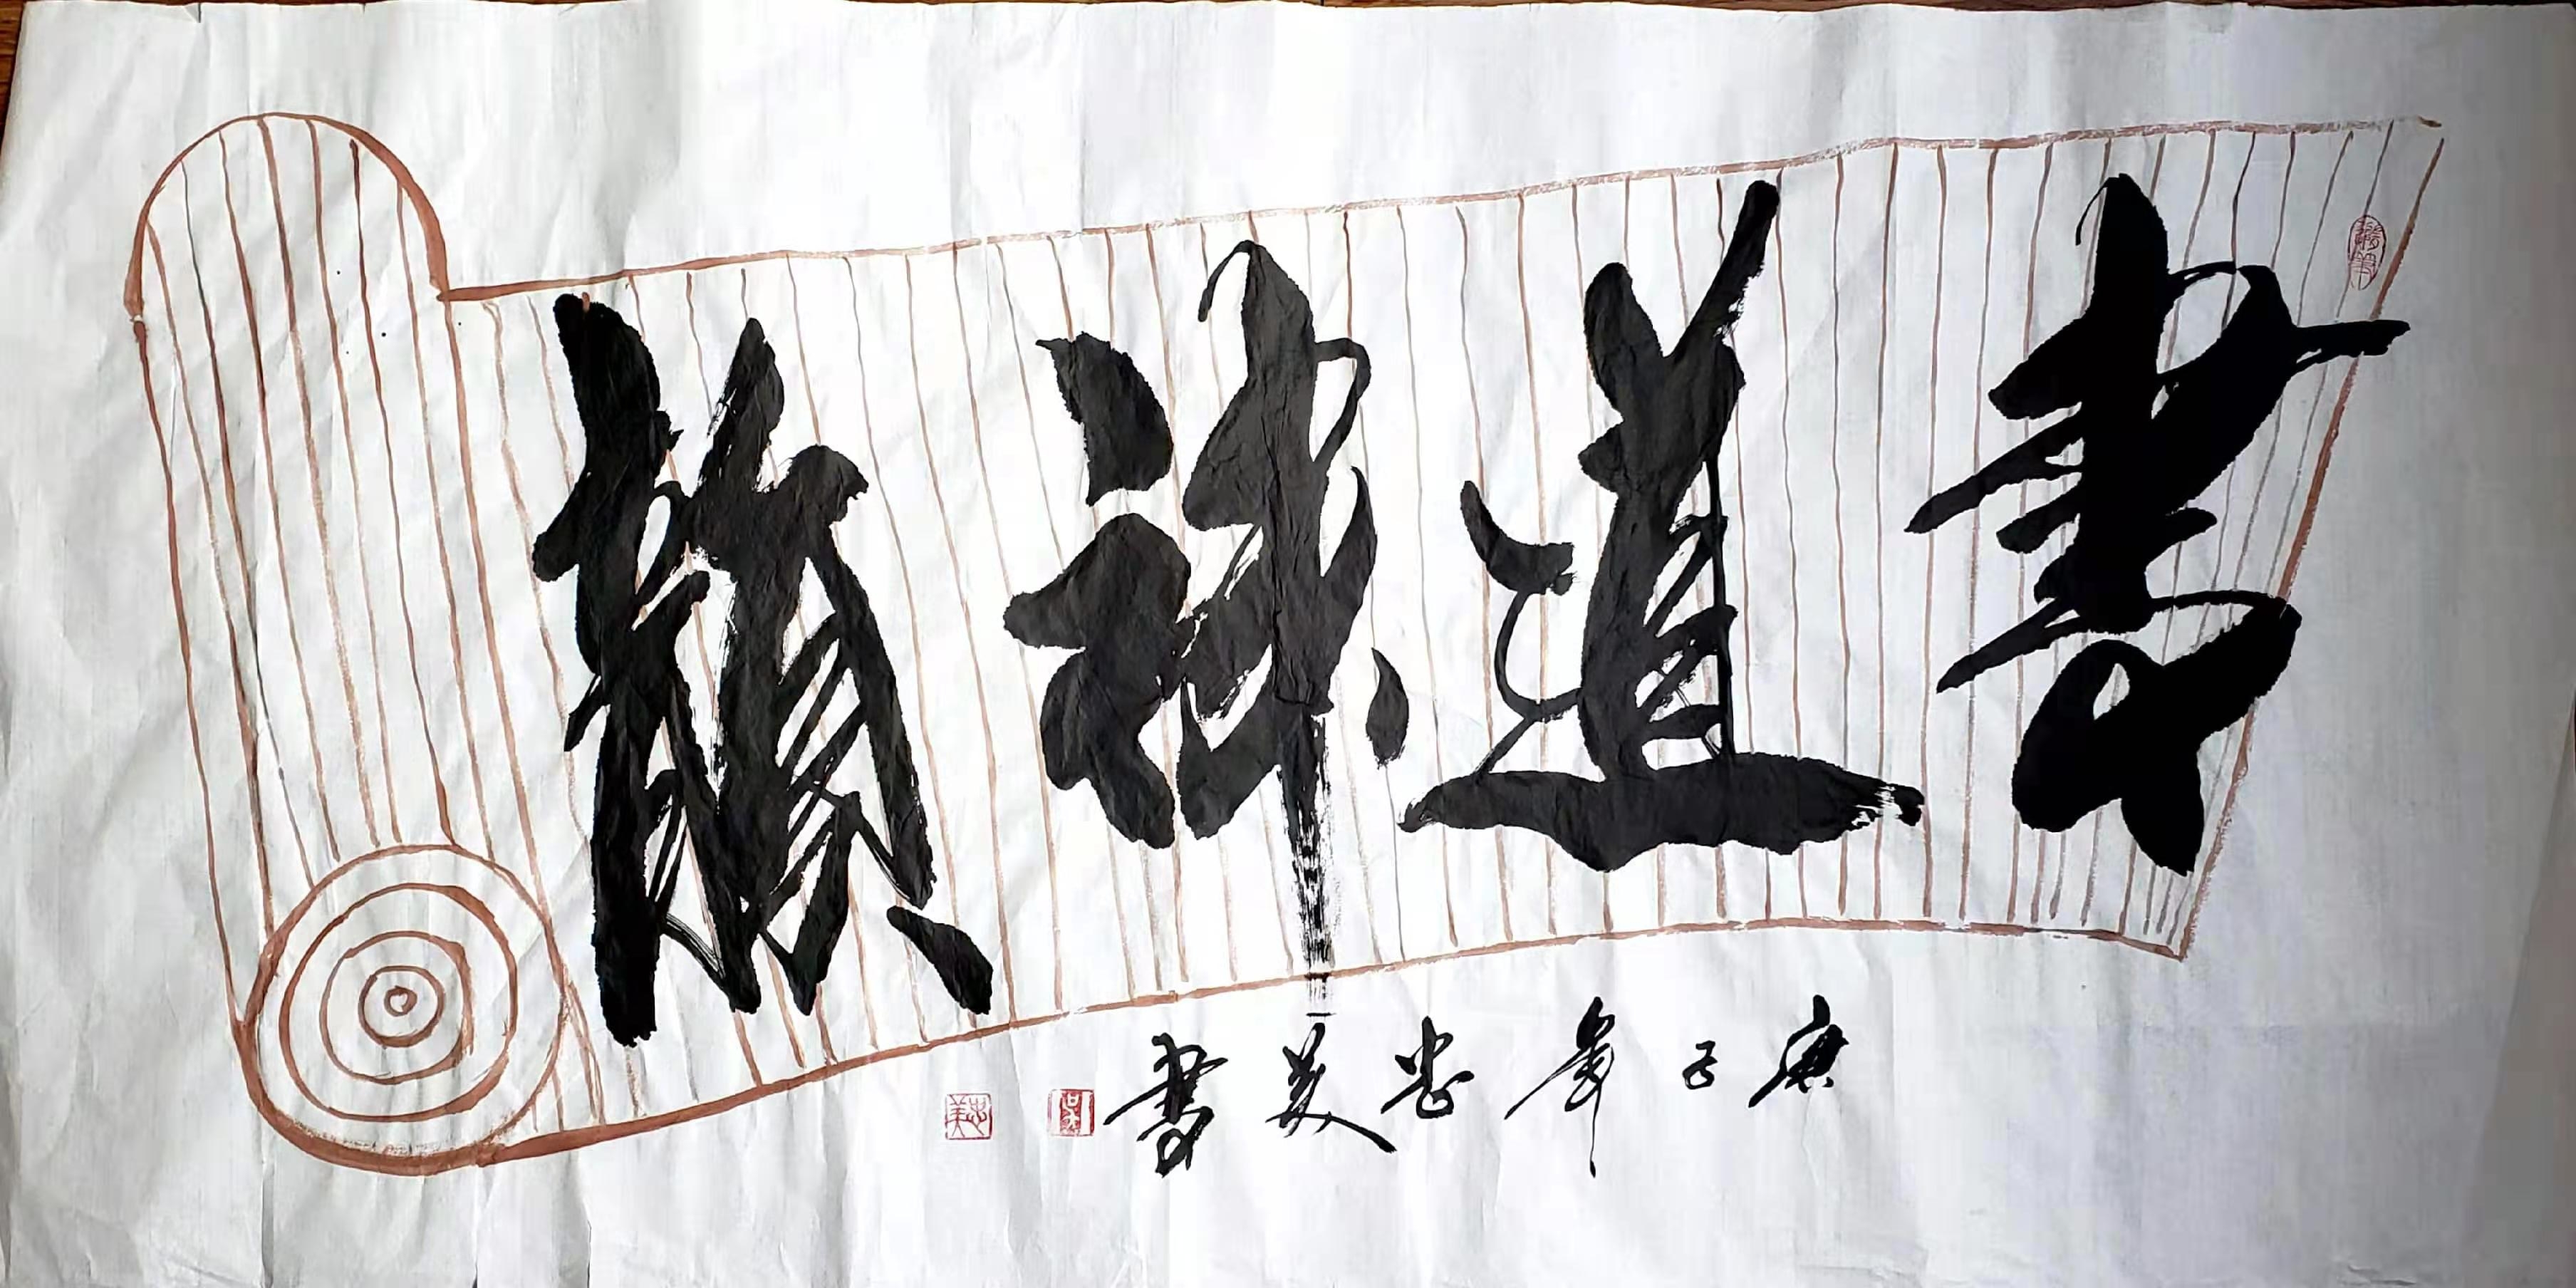 書道神韻
庚子年忠美書
忠美